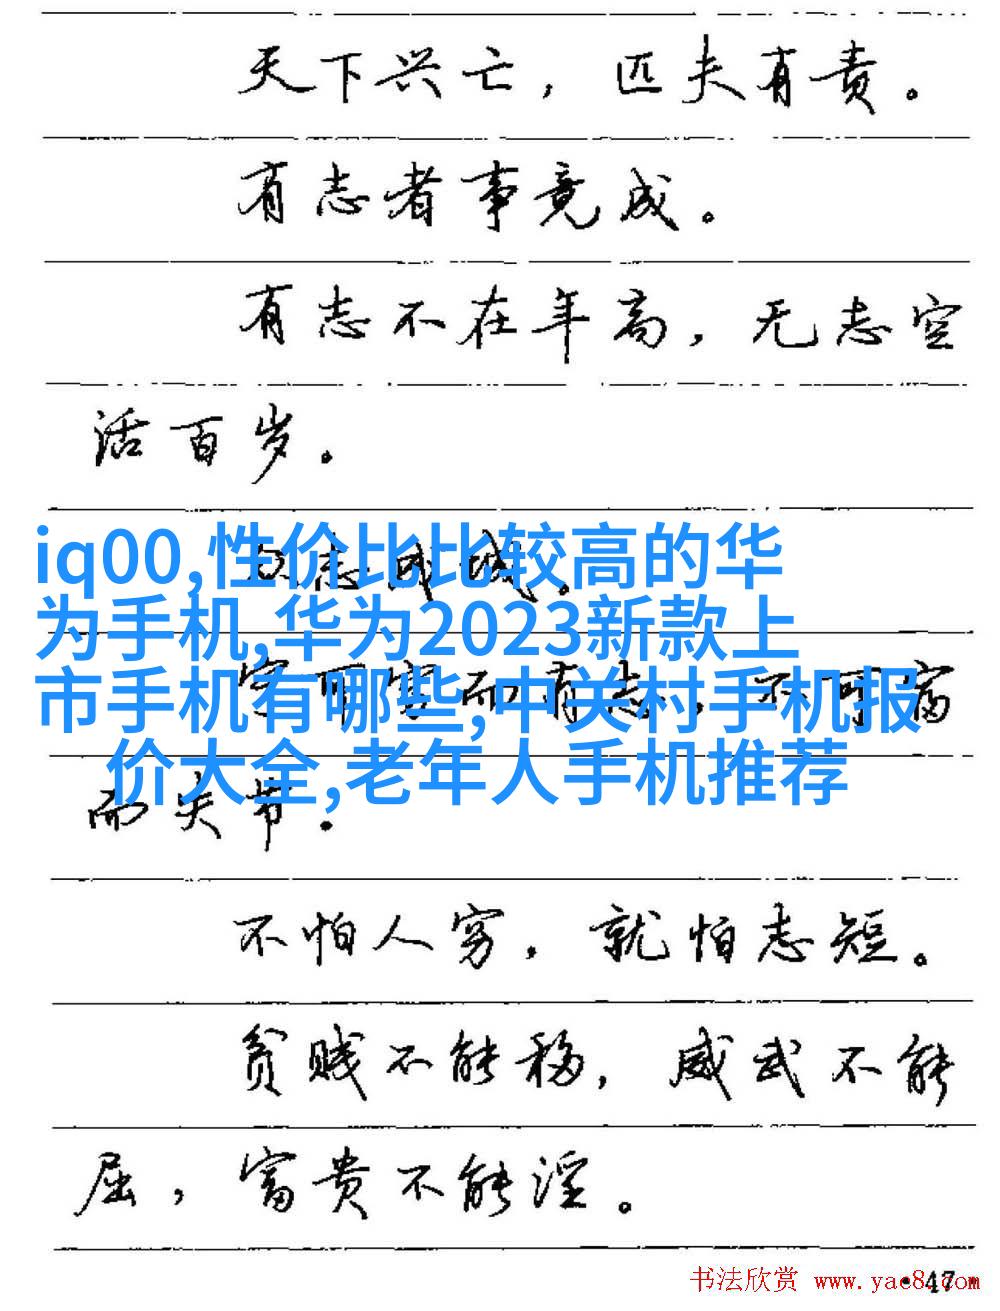 天下兴亡，匹夫有责。
有志者事竟成。
有志不在年高，无志空
活百岁。
众志成城。
iq00,性价比比较高的华
为手机,华为2023新款上
市手机有哪些,中关村手机报
价大全,老年人手机推荐
宁可穷而有志，不可富
而失节。
不怕人穷，就怕志短。
贫贱不能移，威武不能
屈，富贵不能淫。
书法欣赏 www.yac8.com
·47·